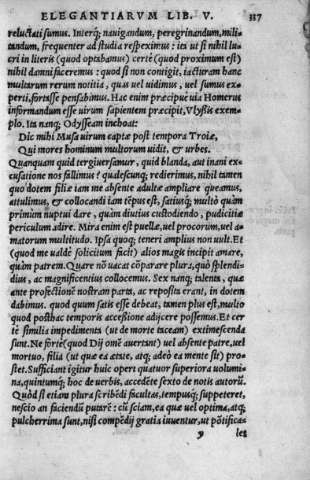 ELEGANTIARVM LIB. V. 337
reluctati sumus. Interq; nauigandum, peregrinandum, mili-
tandum, frequenter ad studia respeximus: ita ut si nihil lu-
cri in literis (quod optabamus) certè (quod proximum est)
nihil damni faceremus: quod si non contigit, iacturam hanc
multarum rerum notitia, quas uel uidimus, uel sumus ex-
perti, fortasse pensabimus. Hac enim præcipuè uia Homerus
informandum esse uirum sapientem præcipit, Vlyssis exem-
plo. Ita nanq; Odysseam inchoat:
Dic mihi Musa uirum captæ post tempora Troiæ,
Qui mores hominum multorum uidit, & urbes.
Quanquam quid tergiuersamur, quid blanda, aut inani ex-
cusatione nos fallimus? qualescunq; redierimus, nihil tamen
quo dotem filiæ iam me absente adultæ ampliare queamus,
attulimus, & collocandi iam tēpus est, satiusq; multò quàm
primùm nuptui dare, quàm diutius custodiendo, pudicitiæ
periculum adire. Mira enim est puellæ, uel procorum, uel a-
matorum multitudo. Ipsa quoq; teneri amplius non uult. Et
(quod me ualdè solicitum facit) alios magis incipit amare,
quàm patrem. Quare nō uacat cōparare plura, quò splendi-
dius, ac magnificentius collocemus. Sex nanq; talenta, quæ
ante profectionē nostram parta, ac reposita erant, in dotem
dabimus. quod quum satis esse debeat, tamen plus est, multo
quod posthac temporis accessione adijcere possemus. Et cer
tè similia impedimenta (ut de morte taceam) extimescenda
sunt. Ne fortè (quod Dij omē auertant) uel absente patre, uel
mortuo, filia (ut quæ ea ætate, atq; adeò ea mente sit) pro-
stet. Sufficiant igitur huic operi quatuor superiora uolumi-
na, quintumq; hoc de uerbis, accedēte sexto de notis autorū.
Quòd si etiam plura scribēdi facultas, tempusq; suppeteret,
nescio an faciendū putarē: cū sciam, ea quæ uel optima, atq;
pulcherrima sunt, nisi compēdij gratia iuuentur, ut pōtificæ-
y les